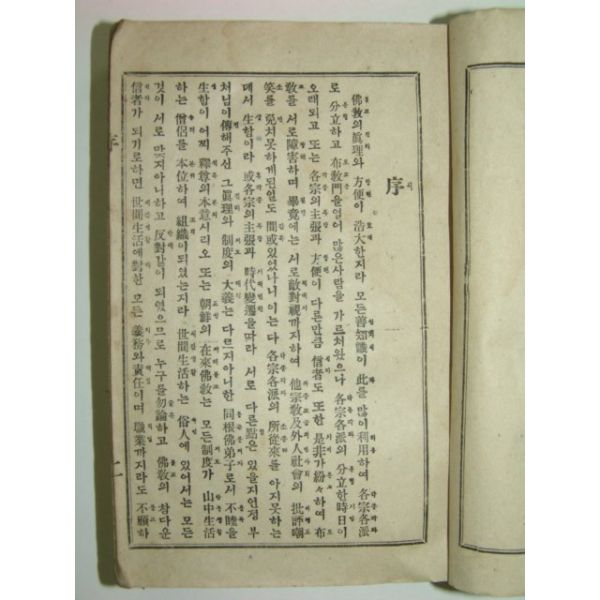 序
佛敎의眞理와 方便이 浩大한지라 모든善知識이 此를많이利用하여 各宗各派
로 分立하고 布敎門을열어 많은사람을 가르처왔으나 各宗各派의 分立한時日이
오래되고 또는各宗의主張과 方便이 다른만큼 信者도 또한 是非가紛々하여 布
敎를 서로障害하며 畢竟에는 서로敵對視까지하여 他宗敎及外人社會의 批評嘲
笑를 免치못하게된일도 間或있었나니 이는다 各宗各派의 所從來를 아지못하는
데서 生함이라 或各宗의主張과 時代變遷을따라 서로 다른點은 있을지언정 부
처님이傳해주신 그眞理와 制度의 大義는 다르지아니한 同根佛弟子로서 不睦을
生함이 어찌 釋尊의本意시리오 또는 朝鮮의在來佛敎는 모든制度가 山中生活
하는 僧侶를本位하여 組織이되였는지라 世間生活하는 俗人에있어서는모든
것이 서로 맞지아니하고 反對같이되였으므로 누구를勿論하고 佛敎의 참다운
信者가 되기로하면 世間生活에對한 모든 義務와責任이며 職業까지라도 不顧하
序 一